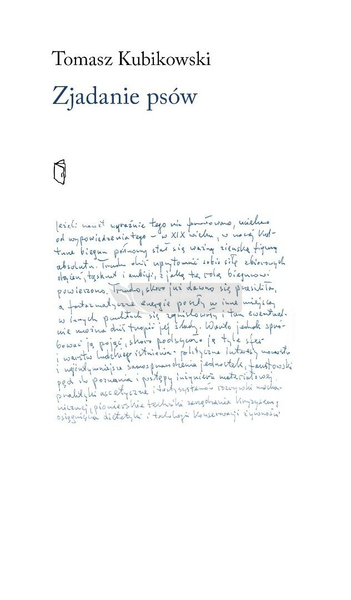 Tomasz Kubikowski
Zjadanie psów
Jeżeli nawet wyraźnie tego nie formułowano, niektóre
od wypowiedzenia tego – w XIX wieku, w naszej kul-
turze biegun północny stał się ważną ziemską figurą
absolutu. Trudno dziś uprzytomnić sobie siłę zbiorowych
dążeń, tęsknot i ambicji, z jaką tę rolę biegunowi
powierzono. Trudno, skoro już dawno się przesiliła,
a fantazmatyczne energie poszły w inne miejsca,
w innych punktach się zogniskowały i tam ewentual-
nie można dziś tropić jej ślady. Warto jednak spró-
bować ją pojąć, skoro podszyto ją tyle sfer
i warstw ludzkiego istnienia: polityczne
i najintymniejsze samospraw jednostek, faustowski
pęd do poznania i postępy inżynierii materiałowej
praktyki ascetyczne i
nicznej, pionierskie techniki zarządzania kryzysem,
osiągnięcia dietetyki i technologii konserwacji żywności